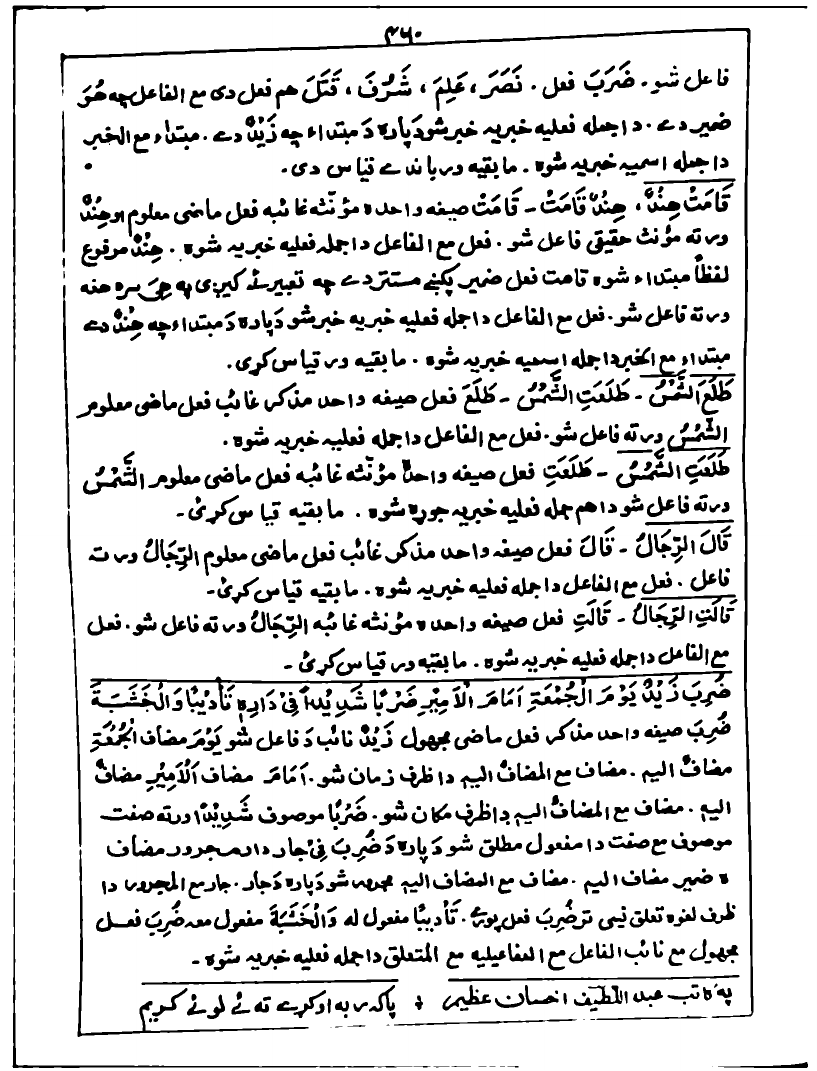 ۴۶۰
فاعل شو. ضَرَبَ فعل. نَصَرَ، عَلِمَ، شَرُفَ، قَتَلَ هم فعل دی مع الفاعل چه هُوَ
ضمیر دے. دا جمله فعلیه خبریه خبر شو دَ پاره دَ مبتداء چه زَیْدٌ دے. مبتداء مع الخبر
دا جمله اسمیه خبریه شوه. مابقیه ور باندے قیاس دی.
قَامَتْ هِنْدٌ، هِنْدٌ قَامَتْ - قَامَتْ صیغه واحده مؤنثه غائبه فعل ماضی معلوم او هِنْدٌ
ورته مؤنث حقیقی فاعل شو. فعل مع الفاعل دا جمله فعلیه خبریه شوه. هِنْدٌ مرفوع
لفظاً مبتداء شوه قامت فعل ضمیر پکښے مستتر دے چه تعبیر ئے کیږی په هِیَ سره هغه
ورته فاعل شو. فعل مع الفاعل دا جمله فعلیه خبریه خبر شو دَ پاره دَ مبتداء چه هِنْدٌ دے
مبتداء مع الخبر دا جمله اسمیه خبریه شوه. مابقیه ور قیاس کړی.
طَلَعَ الشَّمْسُ - طَلَعَتِ الشَّمْسُ - طَلَعَ فعل صیغه واحد مذکر غائب فعل ماضی معلوم
الشَّمْسُ ورته فاعل شو. فعل مع الفاعل دا جمله فعلیه خبریه شوه.
طَلَعَتِ الشَّمْسُ - طَلَعَتِ فعل صیغه واحدة مؤنثه غائبه فعل ماضی معلوم الشَّمْسُ
ورته فاعل شو دا هم جمله فعلیه خبریه جوړه شوه. مابقیه قیاس کړئ -
قَالَ الرِّجَالُ - قَالَ فعل صیغه واحد مذکر غائب فعل ماضی معلوم الرِّجَالُ ورته
فاعل. فعل مع الفاعل دا جمله فعلیه خبریه شوه. مابقیه قیاس کړئ -
قَالَتِ الرِّجَالُ - قَالَتِ فعل صیغه واحده مؤنثه غائبه الرِّجَالُ ورته فاعل شو. فعل
مع الفاعل دا جمله فعلیه خبریه شوه. مابقیه ور قیاس کړئ -
ضُرِبَ زَیْدٌ یَوْمَ الْجُمُعَةِ اَمَامَ الْاَمِیْرِ ضَرْبًا شَدِیْداً فِیْ دَارِهٖ تَأْدِیْبًا وَالْخَشَبَةَ
ضُرِبَ صیغه واحد مذکر فعل ماضی مجهول زَیْدٌ نائب دَ فاعل شو یَوْمَ مضاف الْجُمُعَةِ
مضافٌ الیه. مضاف مع المضافُ الیه دا ظرف زمان شو. اَمَامَ مضاف اَلْاَمِیْرِ مضافٌ
الیه. مضاف مع المضافُ الیه دا ظرف مکان شو. ضَرْبًا موصوف شَدِیْدًا ورته صفت
موصوف مع صفت دا مفعول مطلق شو دَ پاره دَ ضُرِبَ فِیْ جار دار مجرور مضاف
ه ضمیر مضاف الیه. مضاف مع المضاف الیه مجرور شو دَ پاره دَ جار. جار مع المجرور دا
ظرف لغوه تعلق نیسی تر ضُرِبَ فعل پورے. تَأْدِیْبًا مفعول له وَالْخَشَبَةَ مفعول معه ضُرِبَ فعل
مجهول مع نائب الفاعل مع المفاعیلیه مع المتعلق دا جمله فعلیه خبریه شوه -
په کاتب عبد اللطیف احسان عظیم ؛ پاک ربه اوکړے ته ئے لوئے کریم